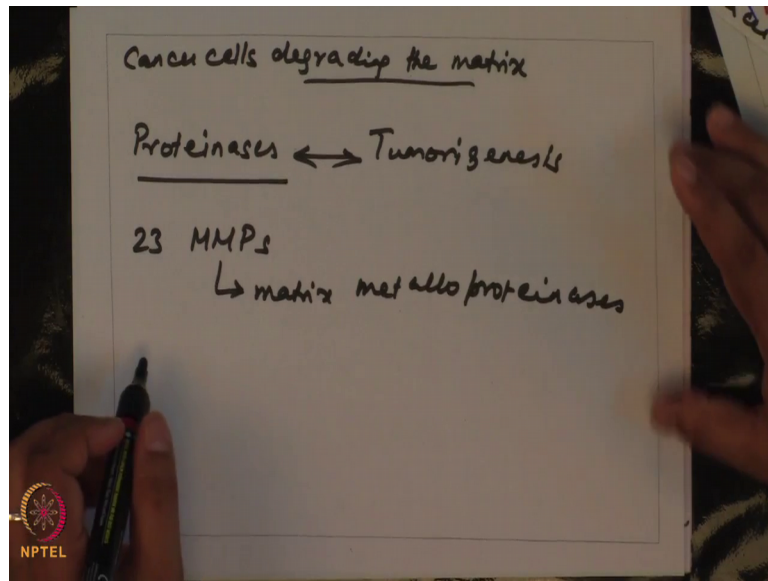 Cancer cells degrading the matrix
Proteinases ↔ Tumorigenesis
23 MMPs
↳ matrix metalloproteinases
NPTEL